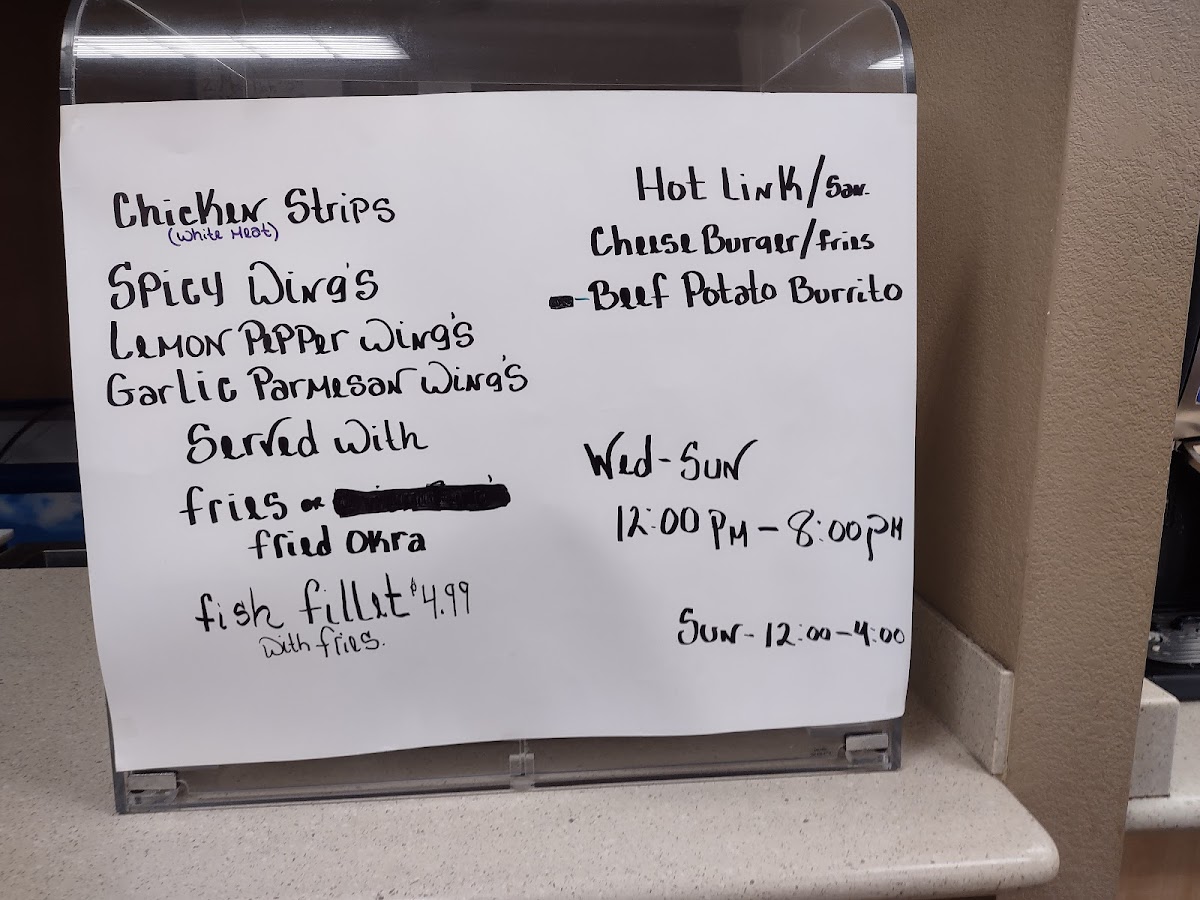 Chicken Strips
(White Meat)
Spicy Wing's
Lemon Pepper Wing's
Garlic Parmesan Wing's
Served With
fries or
fried Okra
fish fillet $4.99
with fries.
Hot Link/San.
Cheese Burger/fries
-Beef Potato Burrito
Wed-Sun
12:00 PM - 8:00 PM
Sun - 12:00-4:00